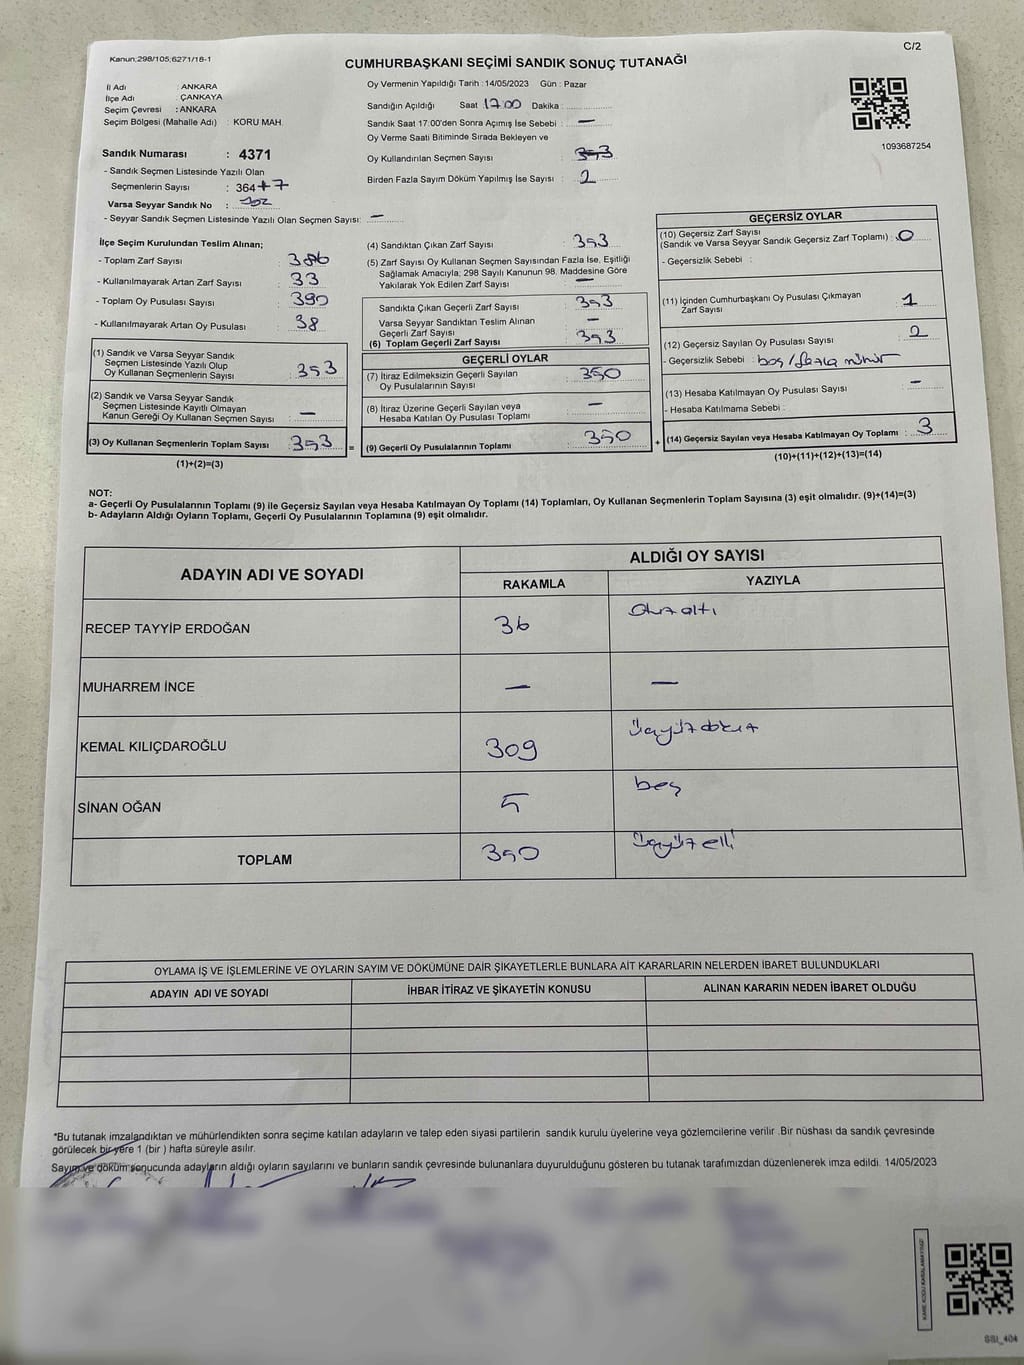 Kanun:298/105;6271/18-1
C/2
CUMHURBAŞKANI SEÇİMİ SANDIK SONUÇ TUTANAĞI
İl Adı : ANKARA
İlçe Adı : ÇANKAYA
Seçim Çevresi : ANKARA
Seçim Bölgesi (Mahalle Adı) : KORU MAH.
Sandık Numarası : 4371
- Sandık Seçmen Listesinde Yazılı Olan
Seçmenlerin Sayısı : 364+7
Varsa Seyyar Sandık No :
- Seyyar Sandık Seçmen Listesinde Yazılı Olan Seçmen Sayısı: —
Oy Vermenin Yapıldığı Tarih : 14/05/2023 Gün : Pazar
Sandığın Açıldığı Saat 17:00 Dakika :
Sandık Saat 17:00'den Sonra Açımış İse Sebebi : —
Oy Verme Saati Bitiminde Sırada Bekleyen ve
Oy Kullandırılan Seçmen Sayısı : 353
Birden Fazla Sayım Döküm Yapılmış İse Sayısı : 2
1093687254
İlçe Seçim Kurulundan Teslim Alınan;
- Toplam Zarf Sayısı : 386
- Kullanılmayarak Artan Zarf Sayısı : 33
- Toplam Oy Pusulası Sayısı : 390
- Kullanılmayarak Artan Oy Pusulası : 38
(1) Sandık ve Varsa Seyyar Sandık
Seçmen Listesinde Yazılı Olup
Oy Kullanan Seçmenlerin Sayısı : 353
(2) Sandık ve Varsa Seyyar Sandık
Seçmen Listesinde Kayıtlı Olmayan
Kanun Gereği Oy Kullanan Seçmen Sayısı : —
(3) Oy Kullanan Seçmenlerin Toplam Sayısı : 353 =
(1)+(2)=(3)
(4) Sandıktan Çıkan Zarf Sayısı : 353
(5) Zarf Sayısı Oy Kullanan Seçmen Sayısından Fazla İse, Eşitliği
Sağlamak Amacıyla; 298 Sayılı Kanunun 98. Maddesine Göre
Yakılarak Yok Edilen Zarf Sayısı : —
Sandıkta Çıkan Geçerli Zarf Sayısı : 353
Varsa Seyyar Sandıktan Teslim Alınan
Geçerli Zarf Sayısı : —
(6) Toplam Geçerli Zarf Sayısı : 353
GEÇERLİ OYLAR
(7) İtiraz Edilmeksizin Geçerli Sayılan
Oy Pusulalarının Sayısı : 350
(8) İtiraz Üzerine Geçerli Sayılan veya
Hesaba Katılan Oy Pusulası Toplamı : —
(9) Geçerli Oy Pusulalarının Toplamı : 350 +
GEÇERSİZ OYLAR
(10) Geçersiz Zarf Sayısı
(Sandık ve Varsa Seyyar Sandık Geçersiz Zarf Toplamı) : 0
- Geçersizlik Sebebi :
(11) İçinden Cumhurbaşkanı Oy Pusulası Çıkmayan
Zarf Sayısı : 1
(12) Geçersiz Sayılan Oy Pusulası Sayısı : 2
- Geçersizlik Sebebi : boş / fazla mühür
(13) Hesaba Katılmayan Oy Pusulası Sayısı : —
- Hesaba Katılmama Sebebi :
(14) Geçersiz Sayılan veya Hesaba Katılmayan Oy Toplamı : 3
(10)+(11)+(12)+(13)=(14)
NOT:
a- Geçerli Oy Pusulalarının Toplamı (9) ile Geçersiz Sayılan veya Hesaba Katılmayan Oy Toplamı (14) Toplamları, Oy Kullanan Seçmenlerin Toplam Sayısına (3) eşit olmalıdır. (9)+(14)=(3)
b- Adayların Aldığı Oyların Toplamı, Geçerli Oy Pusulalarının Toplamına (9) eşit olmalıdır.
ADAYIN ADI VE SOYADI
ALDIĞI OY SAYISI
RAKAMLA YAZIYLA
RECEP TAYYİP ERDOĞAN 36 otuz altı
MUHARREM İNCE — —
KEMAL KILIÇDAROĞLU 309 üçyüz dokuz
SİNAN OĞAN 5 beş
TOPLAM 350 üçyüz elli
OYLAMA İŞ VE İŞLEMLERİNE VE OYLARIN SAYIM VE DÖKÜMÜNE DAİR ŞİKAYETLERLE BUNLARA AİT KARARLARIN NELERDEN İBARET BULUNDUKLARI
ADAYIN ADI VE SOYADI İHBAR İTİRAZ VE ŞİKAYETİN KONUSU ALINAN KARARIN NEDEN İBARET OLDUĞU
*Bu tutanak imzalandıktan ve mühürlendikten sonra seçime katılan adayların ve talep eden siyasi partilerin sandık kurulu üyelerine veya gözlemcilerine verilir .Bir nüshası da sandık çevresinde
görülecek bir yere 1 (bir ) hafta süreyle asılır.
Sayım ve döküm sonucunda adayların aldığı oyların sayılarını ve bunların sandık çevresinde bulunanlara duyurulduğunu gösteren bu tutanak tarafımızdan düzenlenerek imza edildi. 14/05/2023
KARE KODU KARALAMAYINIZ!
SSI_404